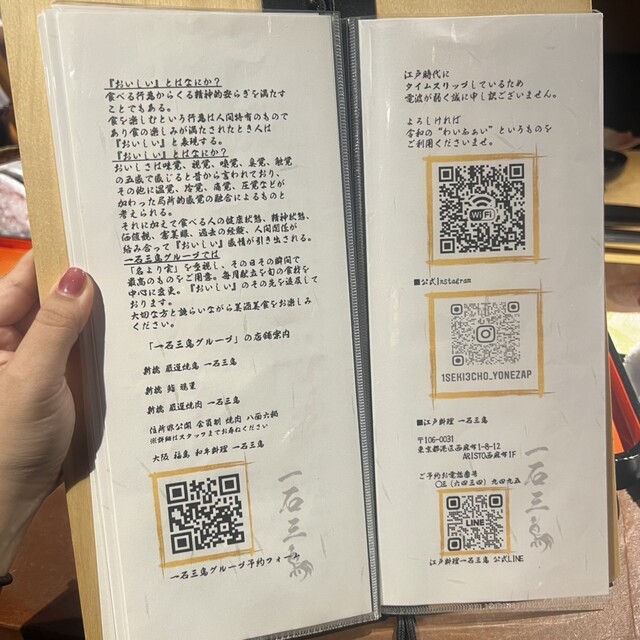 『おいしい』とはなにか？
食べる行為からくる精神的安らぎを満たす
ことでもある。
食を楽しむという行為は人間特有のもので
あり食の楽しみが満たされたとき人は
『おいしい』と表現する。
『おいしい』とはなにか？
おいしさは味覚、視覚、嗅覚、臭覚、触覚
の五感で感じると昔から言われており、
その他に温覚、冷覚、痛覚、圧覚などが
加わった局所的感覚の融合によるものと
考えられる。
それに加えて食べる人の健康状態、精神状態、
価値観、審美眼、過去の経験、人間関係が
絡み合って『おいしい』感情が引き出される。
一石三鳥グループでは
「名より実」を重視し、その日その瞬間で
最高のものをご用意。毎月献立を旬の食材を
中心に変更。『おいしい』のその先を追及して
おります。
大切な方と語らいながら美酒美食をお楽しみ
ください。
「一石三鳥グループ」の店舗案内
新橋 厳選焼鳥 一石三鳥
新橋 鮨
新橋 厳選焼肉 一石三鳥
住所非公開 会員制 焼肉 八面六臂
※詳細はスタッフまでお尋ねください
大阪 福島 和牛料理 一石三鳥
一石三鳥
一石三鳥グループ予約フォーム
江戸時代に
タイムスリップしているため
電波が弱く誠に申し訳ございません。
よろしければ
令和の“わいふぁい”というものを
ご利用くださいませ。
WiFi
■公式Instagram
1SEKI3CHO_YONEZAP
■江戸料理 一石三鳥
〒106-0031
東京都港区西麻布1-8-12
ARISTO西麻布1F
ご予約お電話番号
〇三（六四三四）九四九五
LINE
一石三鳥
江戸料理一石三鳥 公式LINE